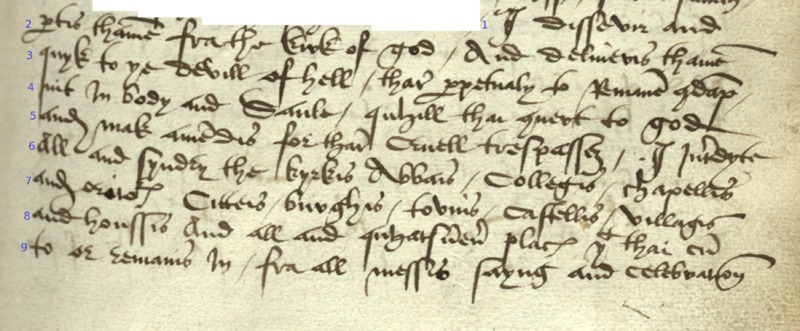 1 I dissevir and
2 ptis thame fra the kirk of god / And deliueris thame
3 quyk to ye devill of hell / thar ppetualy to Remane 9dap
4 nit In body and Saule / quhill thai 9uert to god
5 and mak amēdis for thar Cruell trespassez / I Intdyte
6 All and syndry the kyrkis Abbais / Collegis / chapelles
7 and oritor Citteis / burghis / tovnis / Castellis / villagis
8 and houssis And all and quhatsueu plac yt thai cū
9 to or remanis In / fra all messis sayng and celebration